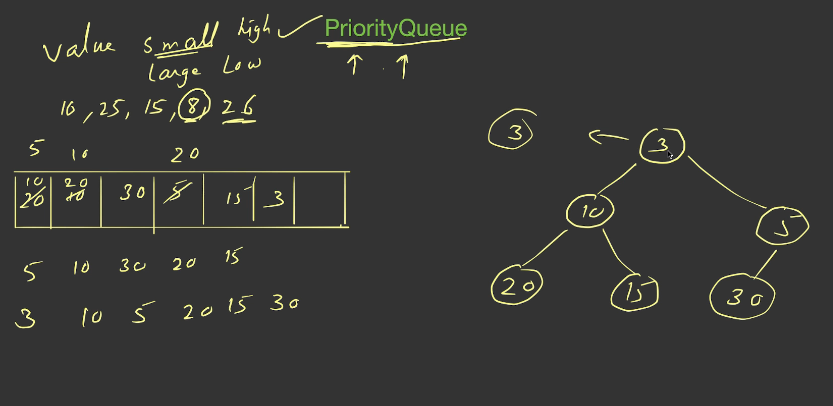 value small high ✓ PriorityQueue
large Low
10, 25, 15, 8, 26
5 10 20
10 20
20 10 30 5 15 3
5 10 30 20 15
3 10 5 20 15 30
3 3
10 5
20 15 30